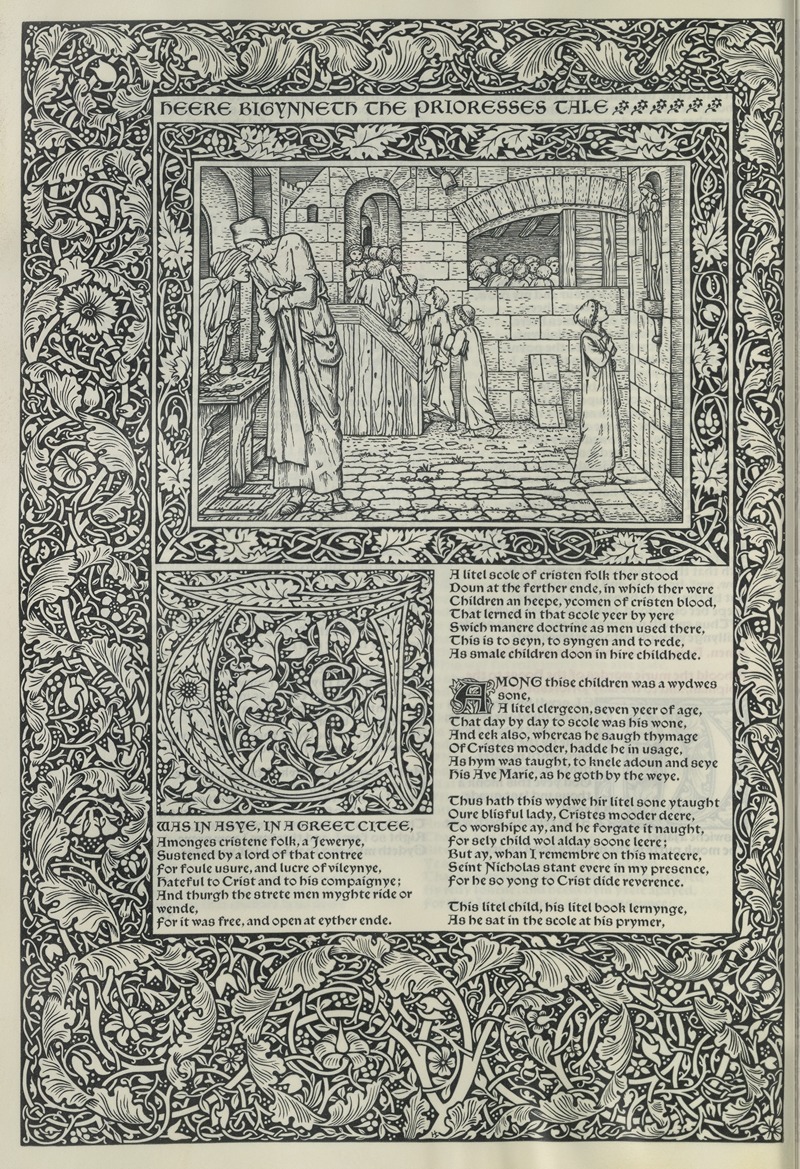 HEERE BIGYNNETH THE PRIORESSES TALE
THER
WAS IN ASYE, IN A GREET CITEE,
Amonges cristene folk, a Jewerye,
Sustened by a lord of that contree
For foule usure, and lucre of vileynye,
Hateful to Crist and to his compaignye;
And thurgh the strete men myghte ride or
wende,
For it was free, and open at eyther ende.
A litel scole of cristen folk ther stood
Doun at the ferther ende, in which ther were
Children an heepe, ycomen of cristen blood,
That lerned in that scole yeer by yere
Swich manere doctrine as men used there,
This is to seyn, to syngen and to rede,
As smale children doon in hire childhede.
AMONG thise children was a wydwes
sone,
A litel clergeon, seven yeer of age,
That day by day to scole was his wone,
And eek also, whereas he saugh thymage
Of Cristes mooder, hadde he in usage,
As hym was taught, to knele adoun and seye
His Ave Marie, as he goth by the weye.
Thus hath this wydwe hir litel sone ytaught
Oure blisful lady, Cristes mooder deere,
To worshipe ay, and he forgate it naught,
For sely child wol alday soone leere;
But ay, whan I remembre on this mateere,
Seint Nicholas stant evere in my presence,
For he so yong to Crist dide reverence.
This litel child, his litel book lernynge,
As he sat in the scole at his prymer,